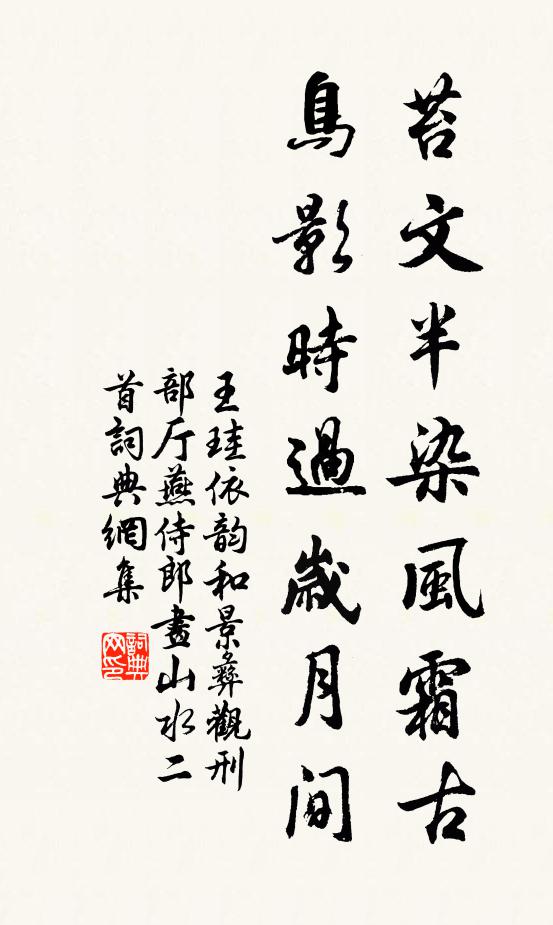 苔文半染風霜古
鳥影時過歲月间
王珪依韵和景彝觀刑
部厅燕侍郎畫山水二
首詞典網集
詞典
网印